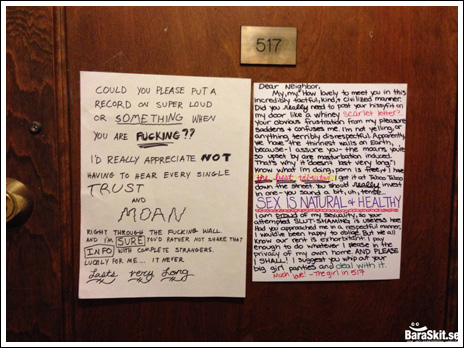 517
COULD YOU PLEASE PUT A
RECORD ON SUPER LOUD
OR SOMETHING WHEN
YOU ARE FUCKING??
I'D REALLY APPRECIATE NOT
HAVING TO HEAR EVERY SINGLE
TRUST
AND
MOAN
RIGHT THROUGH THE FUCKING WALL.
AND I'M SURE YOU'D RATHER NOT SHARE THAT
INFO WITH COMPLETE STRANGERS.
LUCKLY FOR ME... IT NEVER
Lasts very Long
Dear Neighbor,
My, my! How lovely to meet you in this
incredibly tactful, kind, + civilized manner.
Did you really need to post your hissyfit on
my door like a whiney scarlet letter?
Your obvious frustration from my pleasure
saddens + confuses me. I'm not yelling, or
anything terribly disrespectful. Apparently
we have "the thinnest walls on Earth,"
because - I assure you - the moans you're
so upset by are masturbation induced.
That's why it "doesn't last very long." I
know what I'm doing, porn is free, + I have
the best vibrator. I got it at Taboo Video
down the street. You should really invest
in one - you sound a bit, uh, tense.
SEX IS NATURAL & HEALTHY
I am proud of my sexuality, so your
attempted SLUT-SHAMING is useless here.
Had you approached me in a respectful manner,
I would've been happy to oblige. But we all
know our rent is exhorbitant. I pay
enough to do whatever I please in the
privacy of my own home. AND PLEASE
I SHALL! I suggest you whip out your
big girl panties and deal with it.
Much love! - The girl in 517
BaraSkit.se